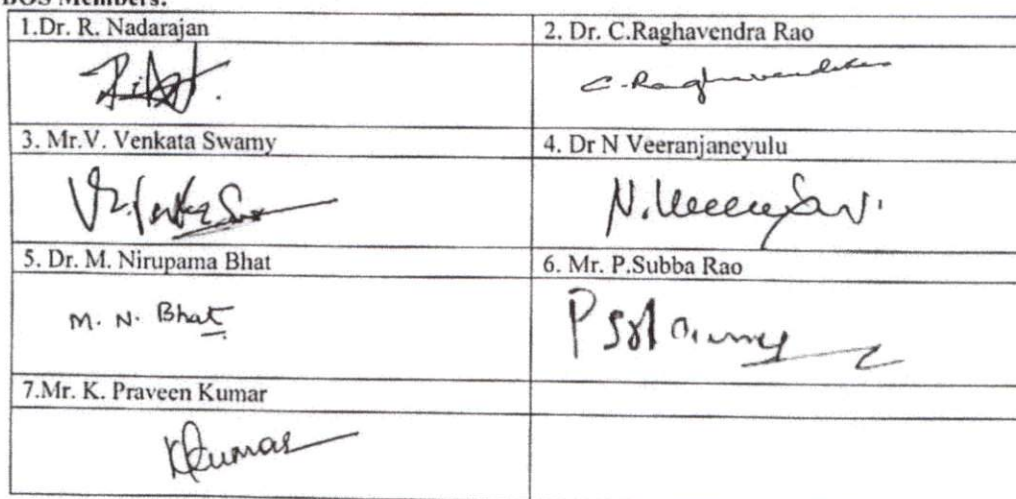 BOS Members:
1.Dr. R. Nadarajan
2. Dr. C.Raghavendra Rao
C.Raghavendra
3. Mr.V. Venkata Swamy
4. Dr N Veeranjaneyulu
5. Dr. M. Nirupama Bhat
6. Mr. P.Subba Rao
M. N. Bhat
7.Mr. K. Praveen Kumar
KKumar